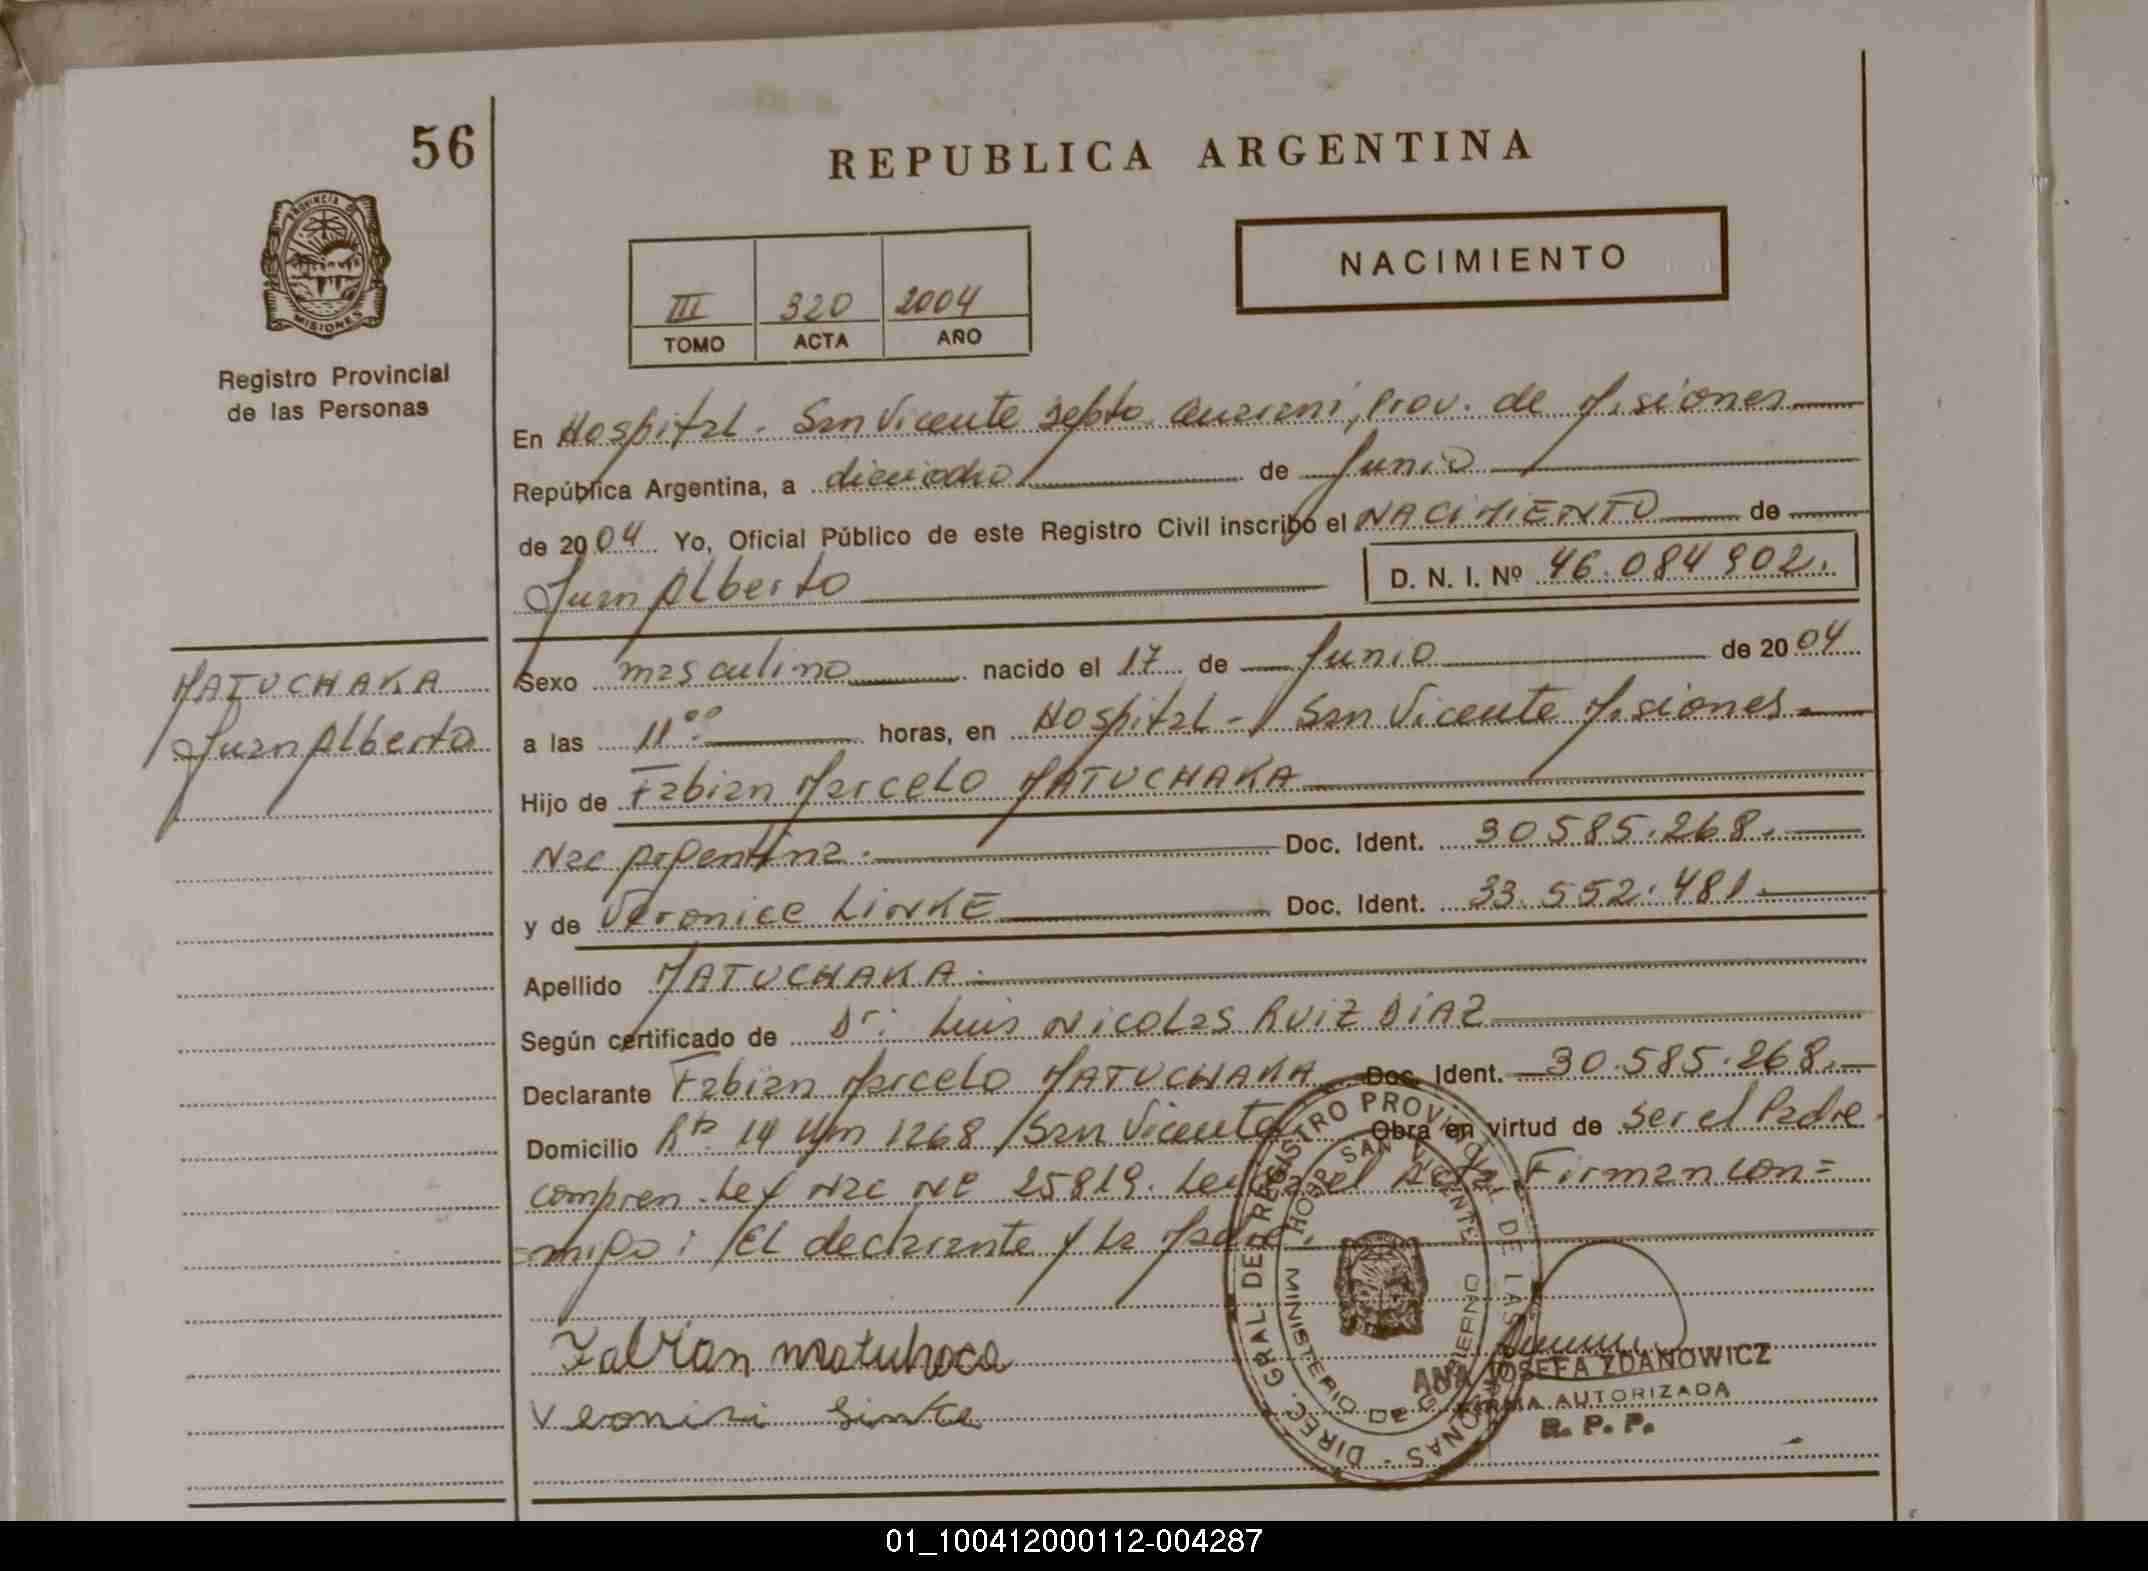 56
REPUBLICA ARGENTINA
PROVINCIA DE
MISIONES
NACIMIENTO
III 320 2004
TOMO ACTA AÑO
Registro Provincial
de las Personas
En Hospital - San Vicente Depto. Guarani, Prov. de Misiones
República Argentina, a dieciocho de Junio
de 2004 Yo, Oficial Público de este Registro Civil inscribo el NACIMIENTO de
Juan Alberto D. N. I. Nº 46.084 902.
MATUCHAKA
Juan Alberto
Sexo masculino nacido el 17 de Junio de 2004
a las 11°° horas, en Hospital - San Vicente Misiones
Hijo de Fabian Marcelo MATUCHAKA
Nac Argentina. Doc. Ident. 30 585.268.
y de Veronice LINKE Doc. Ident. 33.552.481
Apellido MATUCHAKA
Según certificado de Dr: Luis Nicolas RUIZ DIAZ
Declarante Fabian Marcelo MATUCHAKA Doc. Ident. 30.585.268.
Domicilio Rta 14 Km 1268 San Vicente Obra en virtud de ser el Padre.
Compren. Ley Nac Nº 25819. Leida el Acta, Firman con=
=migo: El declarante y la Madre.
Fabian matuhaca
Veronisi Linke
DIREC. GRAL. DEL REGISTRO PROVINCIAL DE LAS PERSONAS -
HOSP. SAN VICENTE
MINISTERIO DE GOBIERNO
ANA JOSEFA ZDANOWICZ
FIRMA AUTORIZADA
R. P. P.
01_100412000112-004287